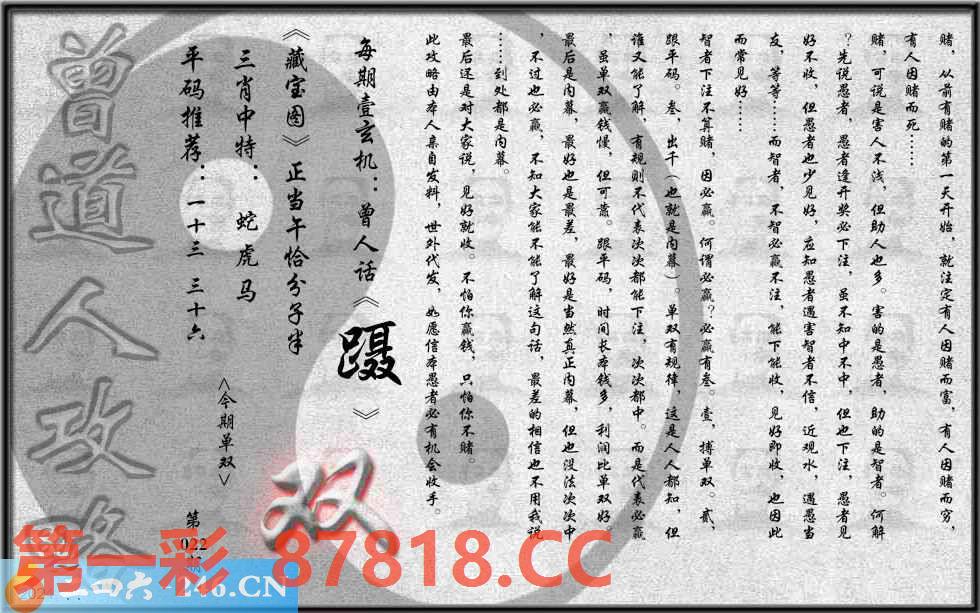 赌，从前有赌的第一天开始，就注定有人因赌而富，有人因赌而穷，
有人因赌而死……
赌，可说是害人不浅，但助人也多。害的是愚者，助的是智者。何解
？先说愚者，愚者逢开奖必下注，虽不知中不中，但也下注，愚者见
好不收，但愚者也少见好，应知愚者遇害智者不信，近观水，遇愚当
友，等等……而智者，不智必赢不注，能下能收，见好即收，也因此
而常见好……
智者下注不算赌，因必赢。何谓必赢？必赢有叁。壹，搏单双。贰，
跟平码。叁，出千（也就是内幕）。单双有规律，这是人人都知，但
谁又能了解，有规则不代表次次都能下注，次次都中。而是代表必赢
，虽单双赢钱慢，但可靠。跟平码，时间长本钱多，利润比单双好。
最后是内幕，最好也是最差，最好是当然真正内幕，但也没法次次中
，不过也必赢，不知大家能不能了解这句话，最差的相信也不用我说
……到处都是内幕。
最后还是对大家说，见好就收。不怕你赢钱，只怕你不赌。
此攻略由本人亲自发料，世外代发，如愿信本愚者必有机会收手。
每期壹玄机：曾人话《蹑》
《藏宝图》正当午恰分子半
三肖中特：蛇虎马
平码推荐：一十三 三十六
<今期单双>
双
第022期
曾道人攻略
第一彩 87818.CC
二四六 246.CN